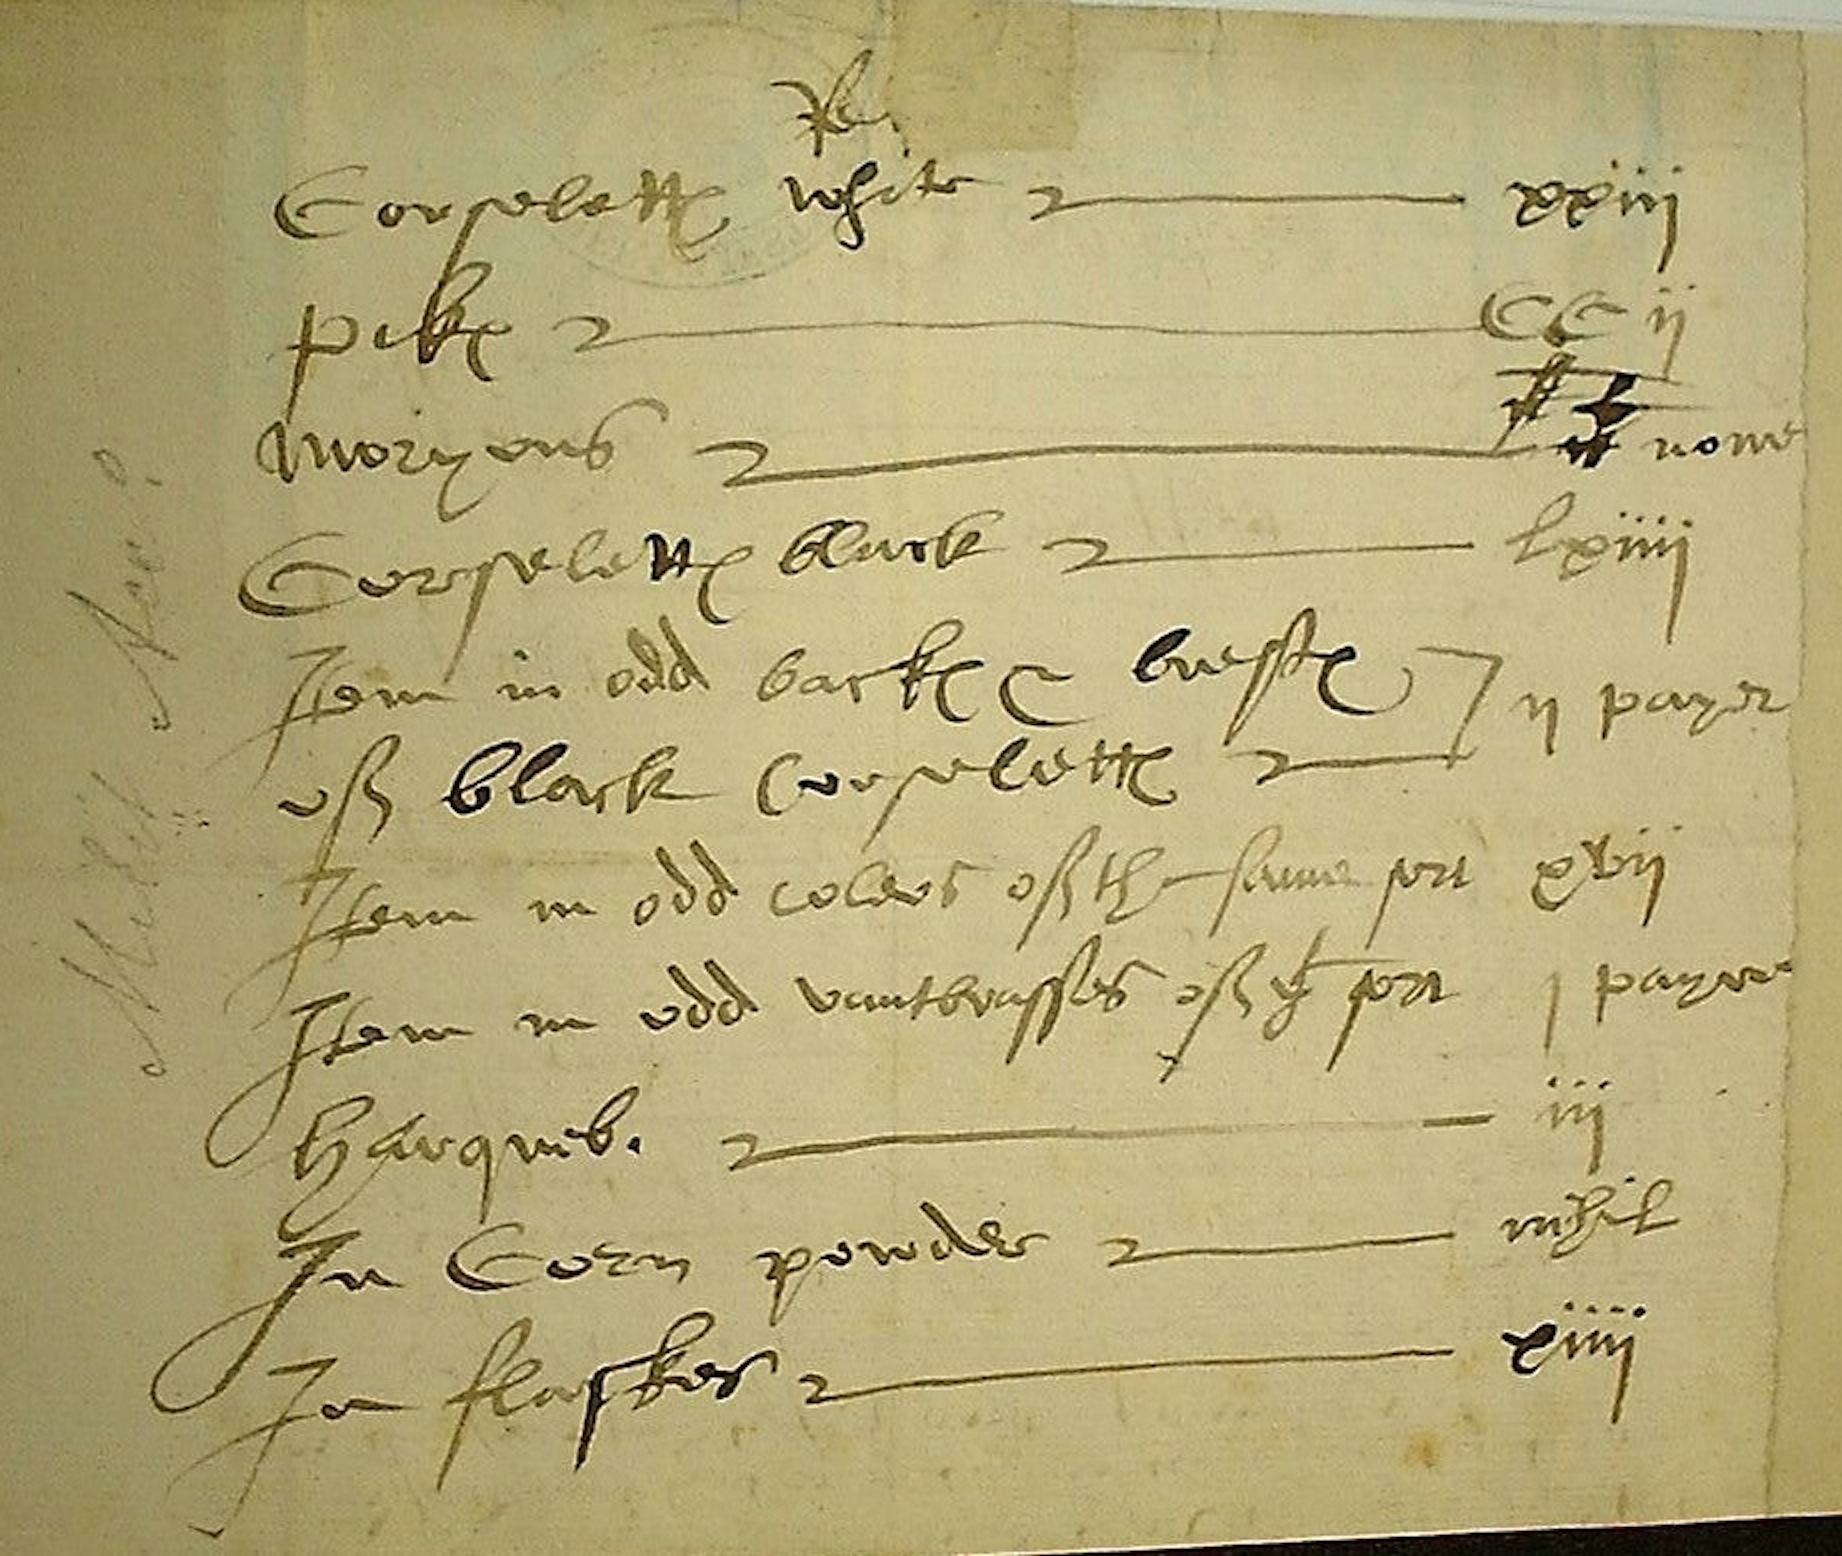 Re
Corselettes white xxiij
pikes CC ij
moryons none
Corselettes black lxiiij
Item in odd backes & brestes ij payer
off black Corselettes
Item in odd colers off the same sort xvij
Item in odd vantbrasses off th sort j payre
Harqueb. iij
In Corn powder nihil
In flaskes xiiij